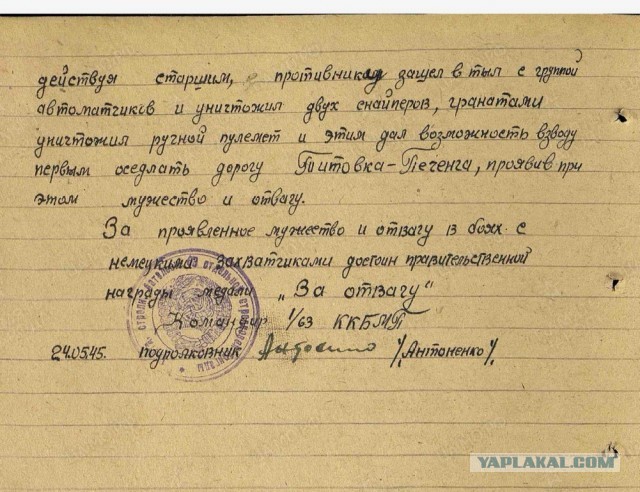 действуя старшим, противника зашел в тыл с группой
автоматчиков и уничтожил двух снайперов, гранатами
уничтожил ручной пулемет и этим дал возможность взводу
первым оседлать дорогу Титовка-Печенга, проявив при
этом мужество и отвагу.
За проявленное мужество и отвагу в боях с
немецкими захватчиками достоин правительственной
награды медали „За отвагу"
Командир 1/63 ККБМП
24.05.45. подполковник /Антоненко/
YAPLAKAL.COM